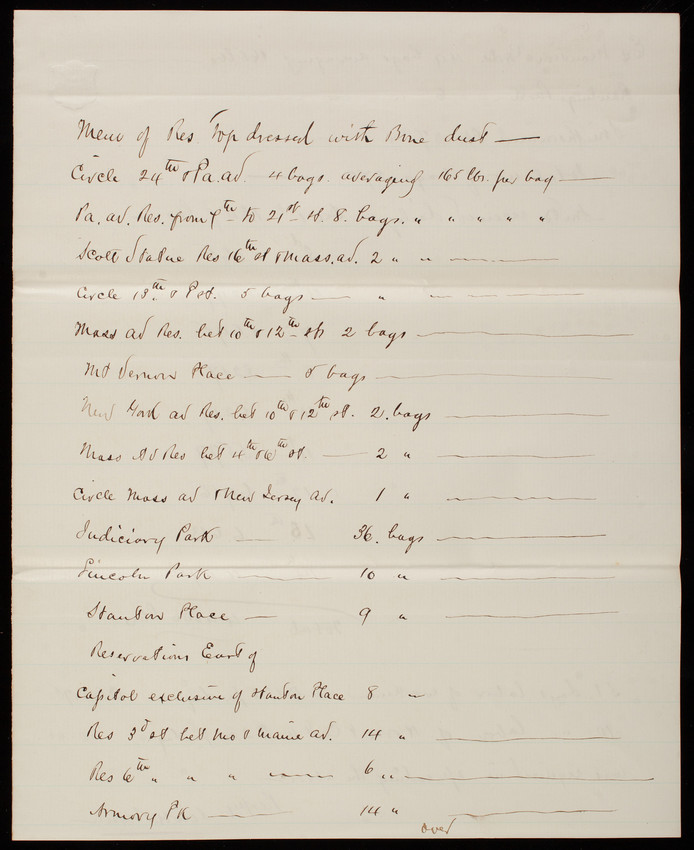 Mem of Res. Top dressed with Bone dust —
Circle 24th & Pa. av. 4 bags. averaging 165 lbs. per bag —
Pa. av. Res. from to 21st st. 8. bags. " " " " "
Scott Statue Res 16th st & Mass. av. 2 " " —
Circle 13th & P st. 5 bags — " —
Mass av Res. bet 10th & 12th sts 2 bags —
Mt Vernon Place — bags —
New York av Res. bet 10th & 12th st. 2. bags —
Mass Av Res bet 4th & 6th st. — 2 " —
Circle Mass av & New Jersey av. 1 " —
Judiciary Park — 36. bags —
Lincoln Park — 10 " —
Stanton Place — 9 " —
Reservations East of
Capitol exclusive of Stanton Place 8 "
Res 3d st bet Mo & Maine av. 14 " —
Res 6th " " " — 6 " —
Armory Pk — 14 " —
over